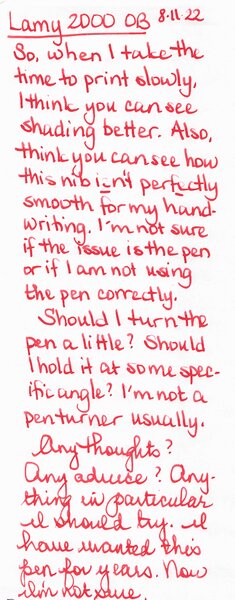 Lamy 2000 OB 8-11-22
So, when I take the
time to print slowly,
I think you can see
shading better. Also,
think you can see how
this nib isn't perfectly
smooth for my hand-
writing. I'm not sure
if the issue is the pen
or if I am not using
the pen correctly.
Should I turn the
pen a little? Should
I hold it at some spec-
ific angle? I'm not a
pen turner usually.
Any thoughts?
Any advice? Any-
thing in particular
I should try. I
have wanted this
pen for years. Now
I'm not sure.